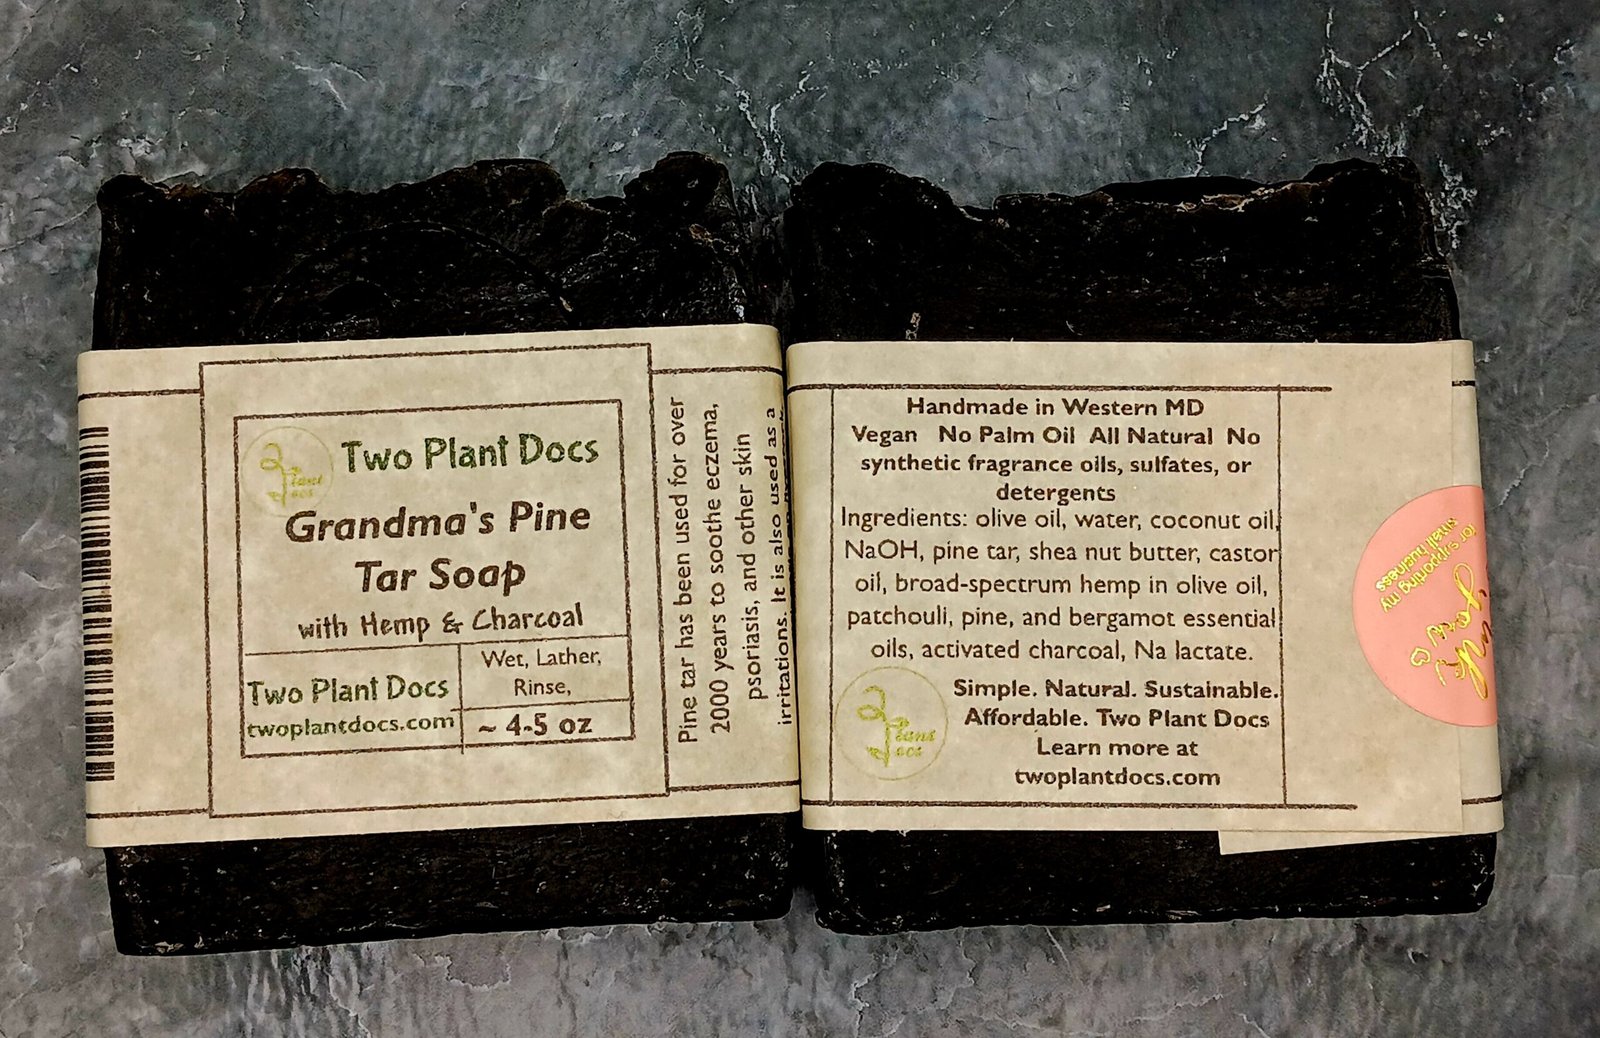 Two Plant Docs
Grandma's Pine
Tar Soap
with Hemp & Charcoal
Two Plant Docs
twoplantdocs.com
Wet, Lather,
Rinse,
~ 4-5 oz
Pine tar has been used for over
2000 years to soothe eczema,
psoriasis, and other skin
irritations. It is also used as a
Handmade in Western MD
Vegan No Palm Oil All Natural No
synthetic fragrance oils, sulfates, or
detergents
Ingredients: olive oil, water, coconut oil,
NaOH, pine tar, shea nut butter, castor
oil, broad-spectrum hemp in olive oil,
patchouli, pine, and bergamot essential
oils, activated charcoal, Na lactate.
Plant
Docs
Simple. Natural. Sustainable.
Affordable. Two Plant Docs
Learn more at
twoplantdocs.com
for supporting my
small business